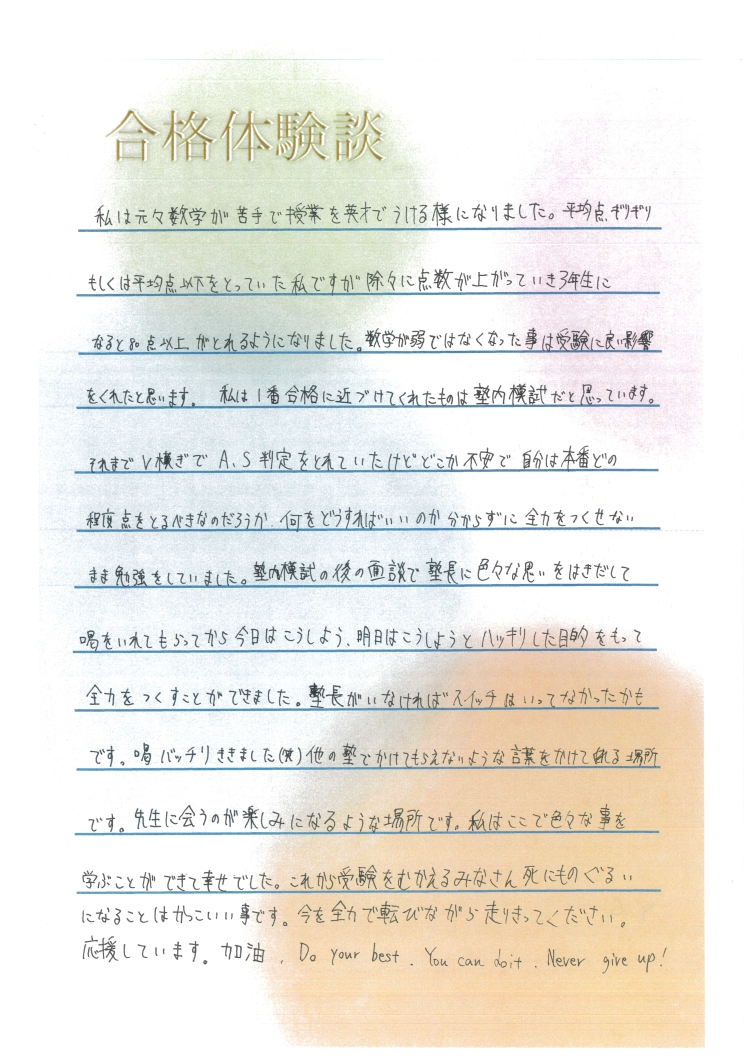 合格体験談
私は元々数学が苦手で授業を英才でうける様になりました。平均点ギリギリ
もしくは平均点以下をとっていた私ですが除々に点数が上がっていき3年生に
なると80点以上がとれるようになりました。数学が弱ではなくなった事は受験に良い影響
をくれたと思います。 私は1番合格に近づけてくれたものは塾内模試だと思っています。
それまでV模ぎでA、S判定をとれていたけどどこか不安で自分は本番どの
程度点をとるべきなのだろうか、何をどうすればいいのか分からずに全力をつくせない
まま勉強をしていました。塾内模試の後の面談で塾長に色々な思いをはきだして
喝をいれてもらってから今日はこうしよう、明日はこうしようとハッキリした目的をもって
全力をつくすことができました。塾長がいなければスイッチはいってなかったかも
です。喝バッチリききました(笑)他の塾でかけてもらえないような言葉をかけてくれる場所
です。先生に会うのが楽しみになるような場所です。私はここで色々な事を
学ぶことができて幸せでした。これから受験をむかえるみなさん死にものぐるい
になることはかっこいい事です。今を全力で転びながら走りきってください。
応援しています。加油、Do your best. You can do it. Never give up!